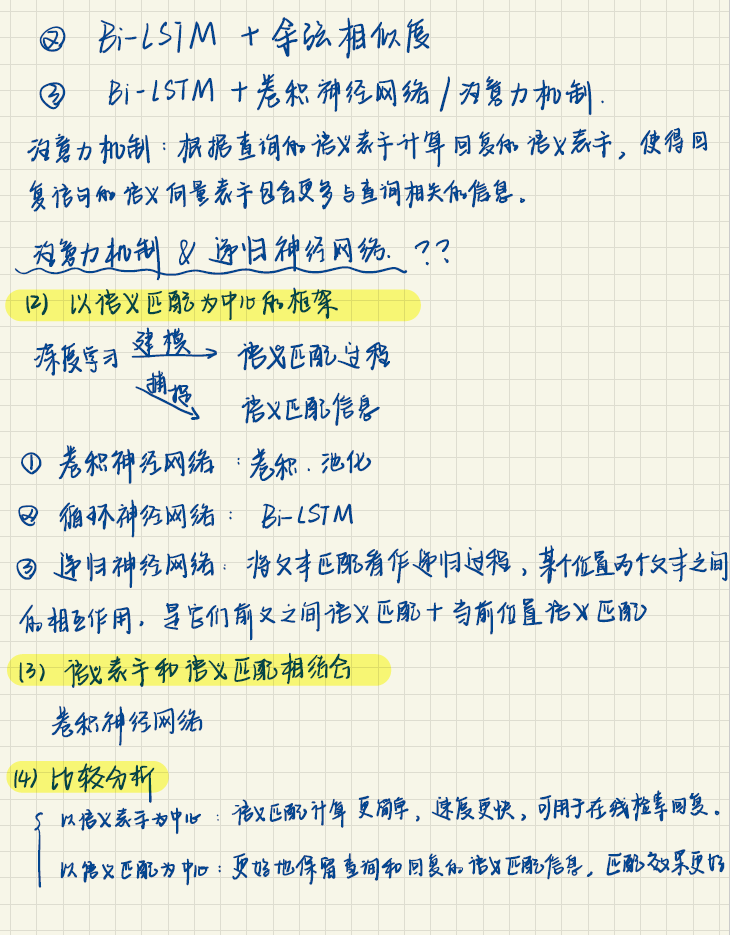 ② Bi-LSTM + 余弦相似度
③ Bi-LSTM + 卷积神经网络 / 注意力机制.
注意力机制：根据查询的语义表示计算回复的语义表示，使得回
复语句的语义向量表示包含更多与查询相关的信息。
注意力机制 & 递归神经网络. ??
(2) 以语义匹配为中心的框架
深度学习 建模 语义匹配过程
捕捉 语义匹配信息
① 卷积神经网络：卷积. 池化
② 循环神经网络：Bi-LSTM
③ 递归神经网络：将文本匹配看作递归过程，某个位置两个文本之间
的相互作用，是它们前文之间语义匹配 + 当前位置语义匹配
(3) 语义表示和语义匹配相结合
卷积神经网络
(4) 比较分析
以语义表示为中心：语义匹配计算更简单，速度更快，可用于在线检索回复。
以语义匹配为中心：更好地保留查询和回复的语义匹配信息，匹配效果更好